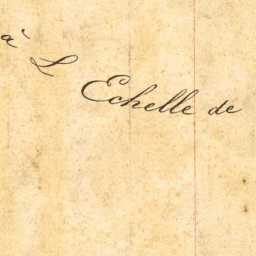 à L Echelle de